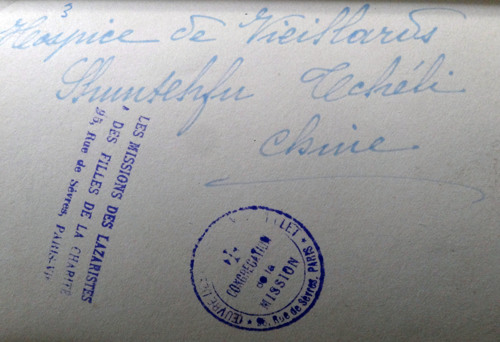 3
Hospice de Vieillards
Shuntehfu Tchéli
Chine
LES MISSIONS DES LAZARISTES
DES FILLES DE LA CHARITÉ
95, Rue de Sèvres, PARIS-VIe
CONGRÉGATION
de la
MISSION
ŒUVRE
95, Rue de Sèvres, PARIS